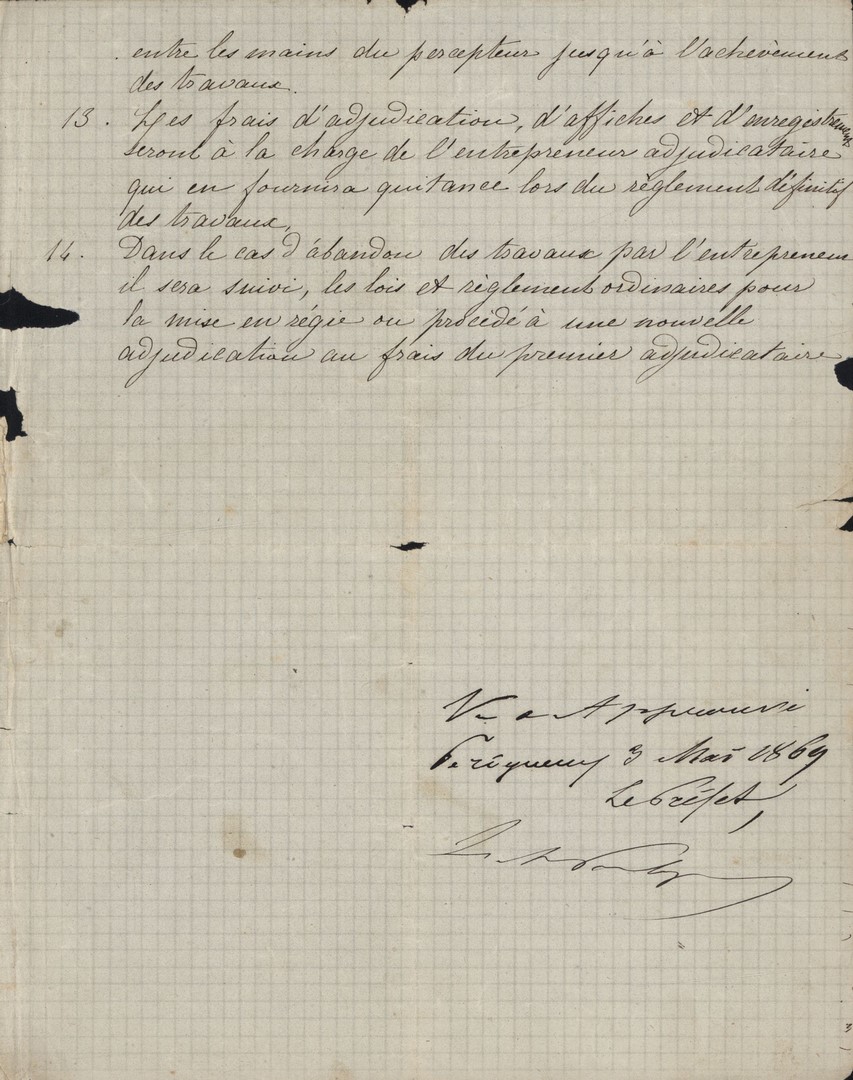 entre les mains du percepteur jusqu'à l'achèvement
des travaux.
13. Les frais d'adjudication, d'affiches et d'enregistrement
seront à la charge de l'entrepreneur adjudicataire
qui en fournira quitance lors du règlement définitif
des travaux,
14. Dans le cas d'abandon des travaux par l'entrepreneur
il sera suivi, les lois et règlement ordinaires pour
la mise en régie ou procédé à une nouvelle
adjudication au frais du premier adjudicataire
Vu & Approuvé
Périgueux 3 Mai 1869
Le Préfet,